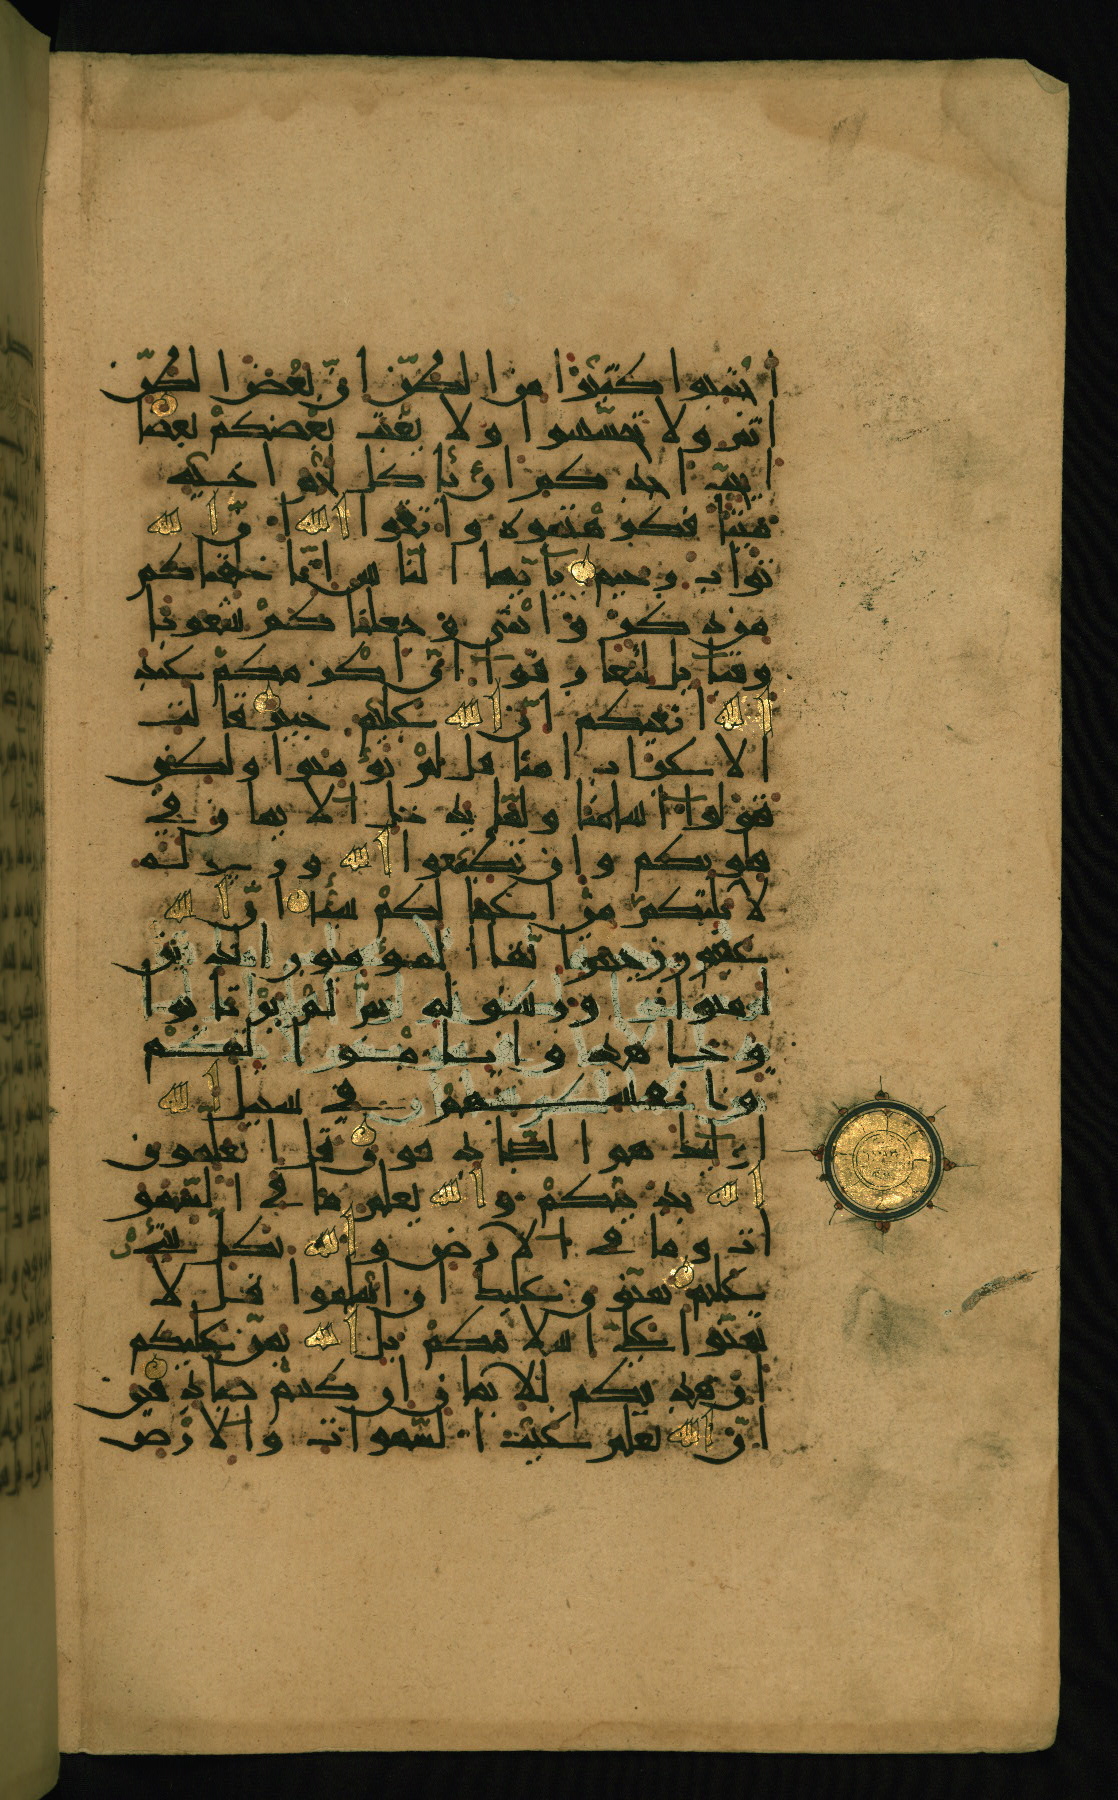 اجتنبوا كثيرا من الظن ان بعض الظن
اثم ولا تجسسوا ولا يغتب بعضكم بعضا
ايحب احدكم ان ياكل لحم اخيه
ميتا فكرهتموه واتقوا الله ان الله
تواب رحيم يايها الناس انا خلقناكم
من ذكر وانثى وجعلناكم شعوبا
وقبايل لتعارفوا ان اكرمكم عند
الله اتقيكم ان الله عليم خبير قالت
الاعراب امنا قل لم تؤمنوا ولكن
قولوا اسلمنا ولما يدخل الايمان في
قلوبكم وان تطيعوا الله ورسوله
لا يلتكم من اعمالكم شيئا ان الله
غفور رحيم انما المؤمنون الذين
امنوا ورسوله ثم لم يرتابوا
وجاهدوا باموالهم
وانفسهم في سبيل الله
اولئك هم الصادقون قل اتعلمون
الله بدينكم والله يعلم ما في السمو
ات وما في الارض والله بكل شيء
عليم يمنون عليك ان اسلموا قل لا
تمنوا على اسلامكم بل الله يمن عليكم
ان هديكم للايمان ان كنتم صادقين
ان الله يعلم غيب السموات والارض